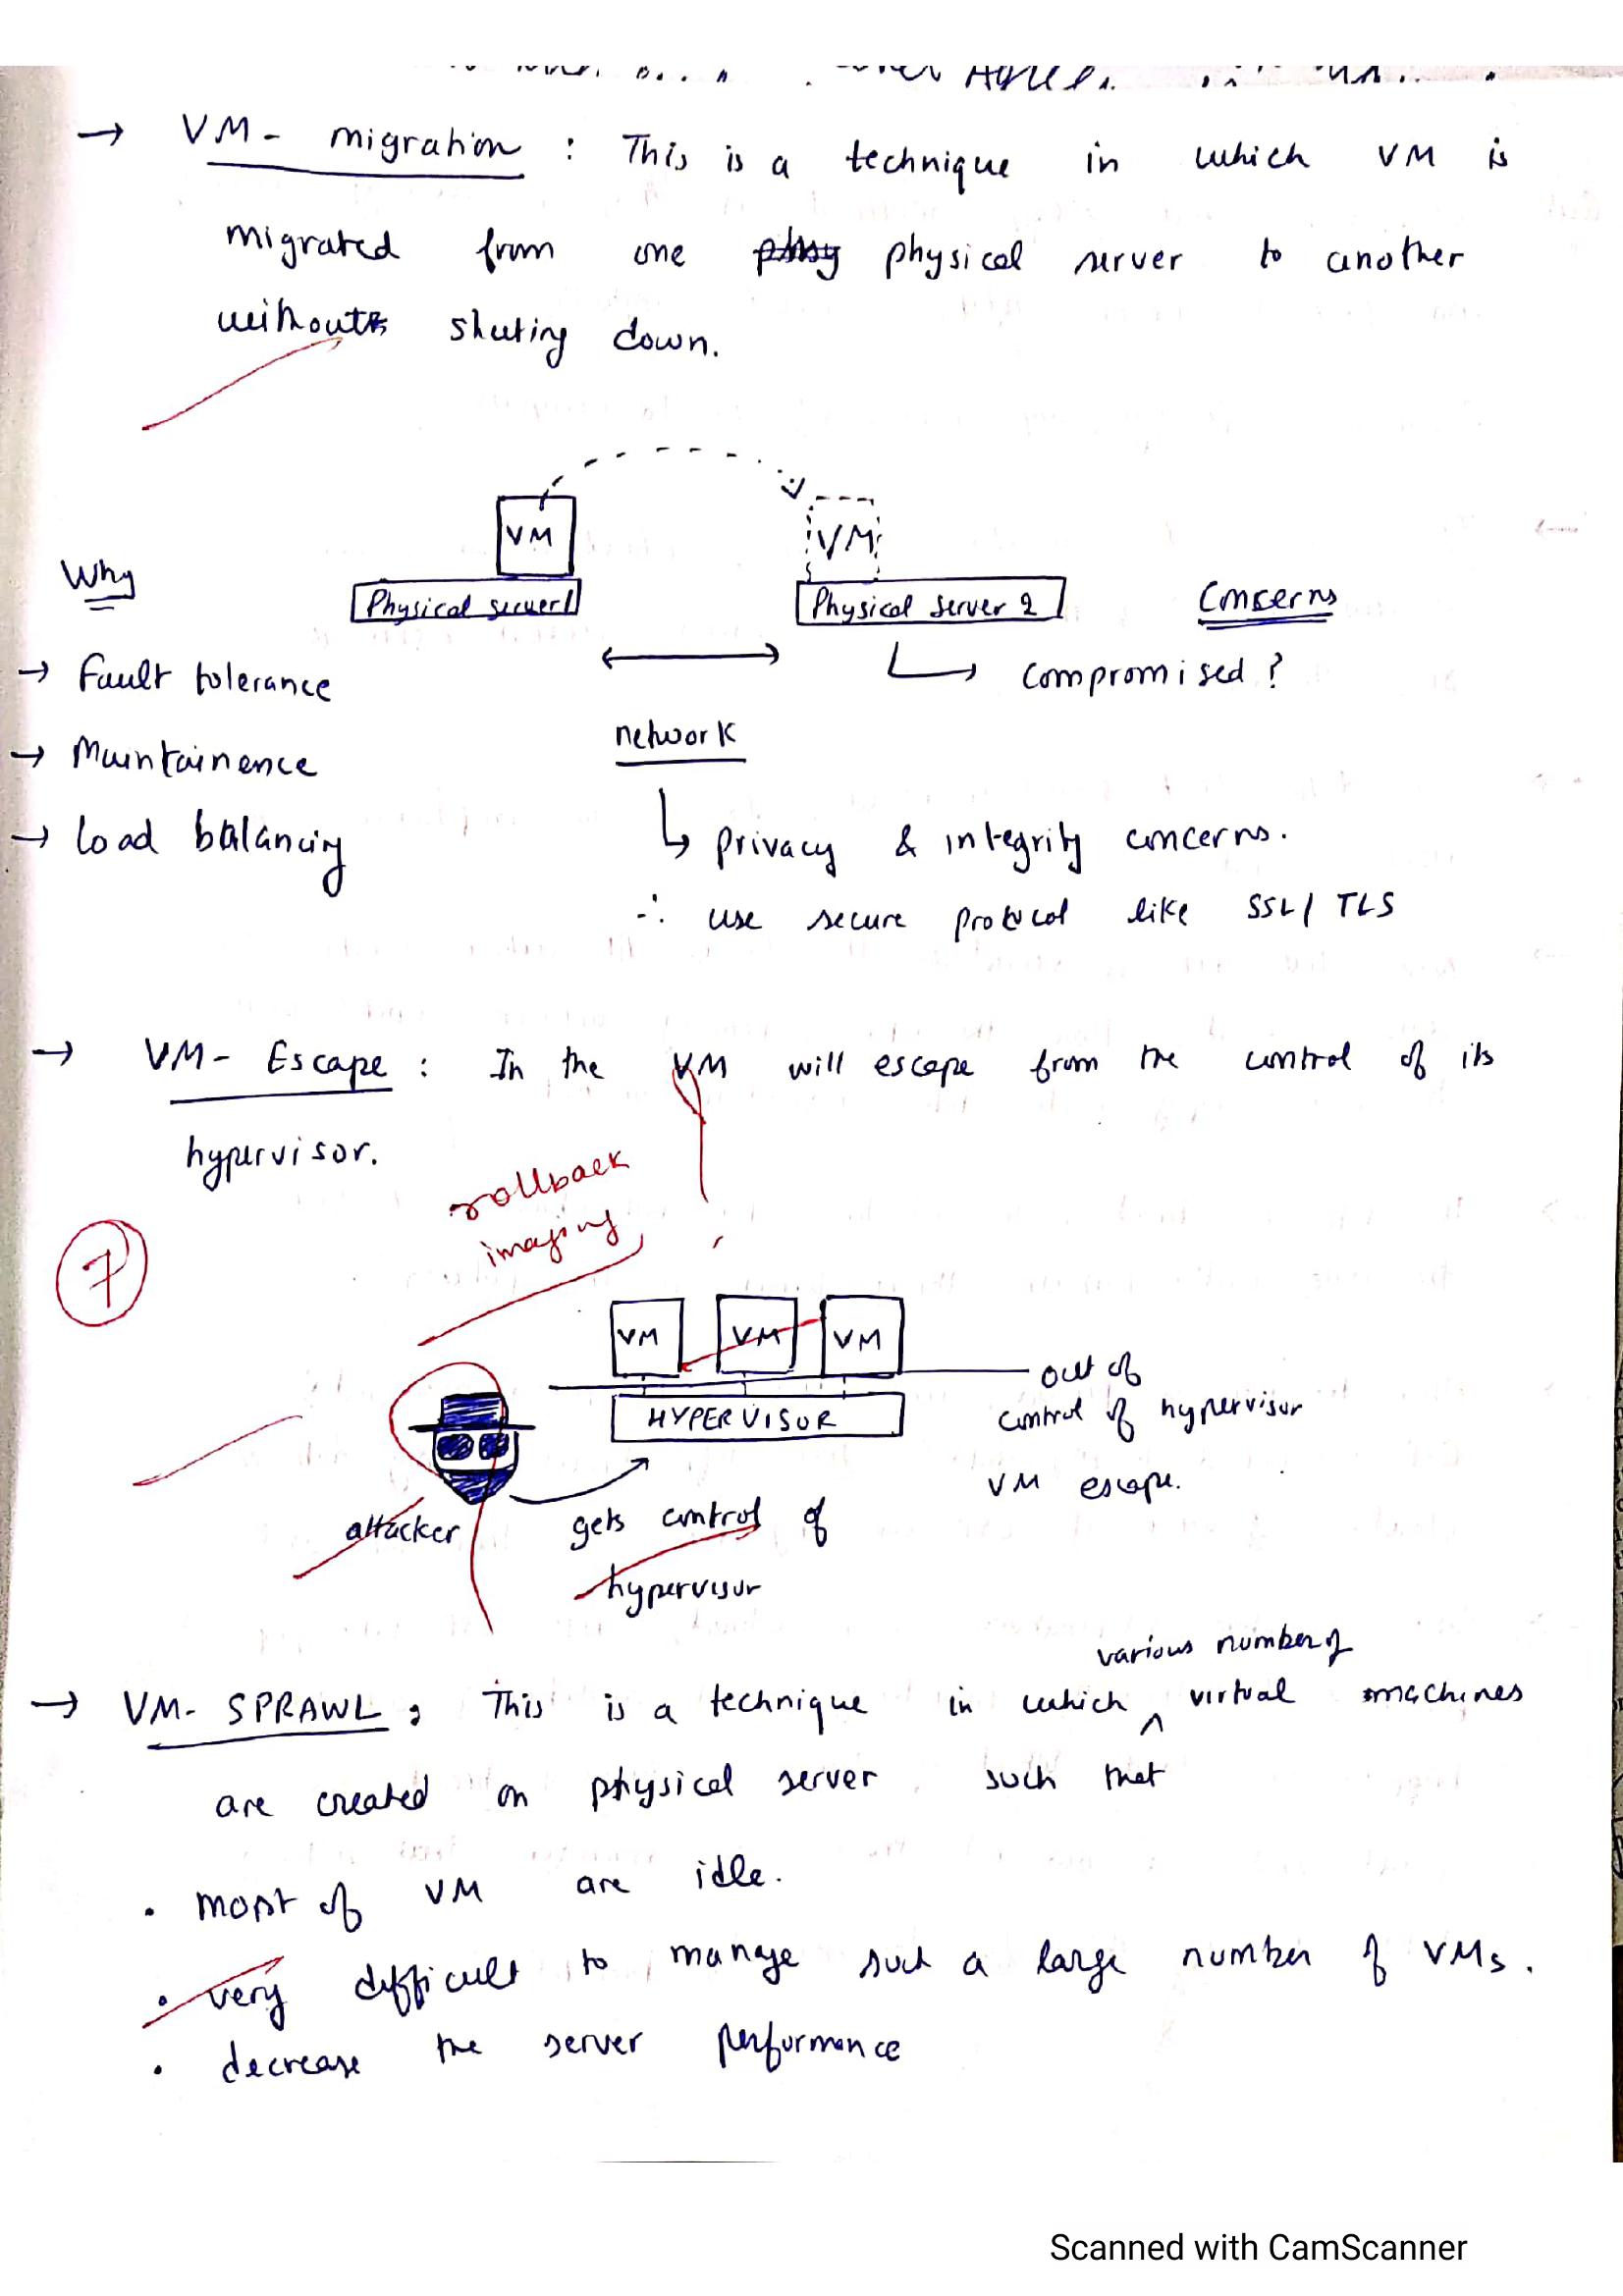 → VM- migration : This is a technique in which VM is
migrated from one physical server to another
without shuting down.
VM
VM
Why
Physical server 1
Physical server 2
Concerns
→ Fault tolerance
compromised ?
→ Maintainence
network
→ load balancing
privacy & integrity concerns.
∴ use secure protocol like SSL / TLS
→ VM- Escape : In the VM will escape from the control of its
hypervisor.
rollback
imaging
7
VM VM VM
out of
HYPERVISOR
control of hypervisor
VM escape.
attacker
gets control of
hypervisor
various number of
→ VM- SPRAWL : This is a technique in which ^ virtual machines
are created on physical server such that
• most of VM are idle.
• very difficult to manage such a large number of VMs.
• decrease the server performance
Scanned with CamScanner